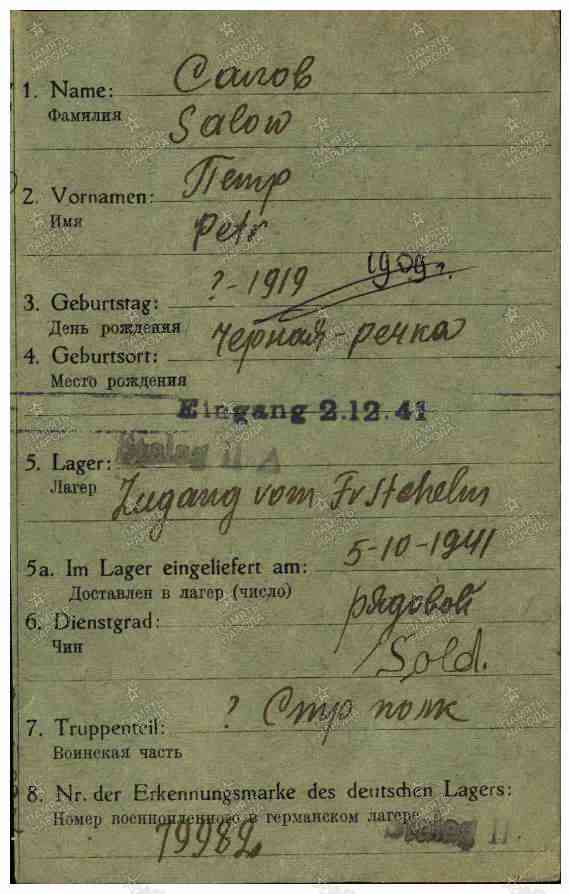 1. Name: Салов
Фамилия
Salow
2. Vornamen: Петр
Имя
Petr
3. Geburtstag: ?-1919 1909 г.
День рождения
4. Geburtsort: Черная-речка
Место рождения
Eingang 2.12.41
Stalag II A
5. Lager:
Лагерь
Zugang vom
5a. Im Lager eingeliefert am: 5-10-1941
Доставлен в лагерь (число)
6. Dienstgrad: рядовой
Чин
Sold.
7. Truppenteil: ? Стр полк
Воинская часть
8. Nr. der Erkennungsmarke des deutschen Lagers:
Номер военнопленного в германском лагере
79982 Stalag II
ПАМЯТЬ НАРОДА